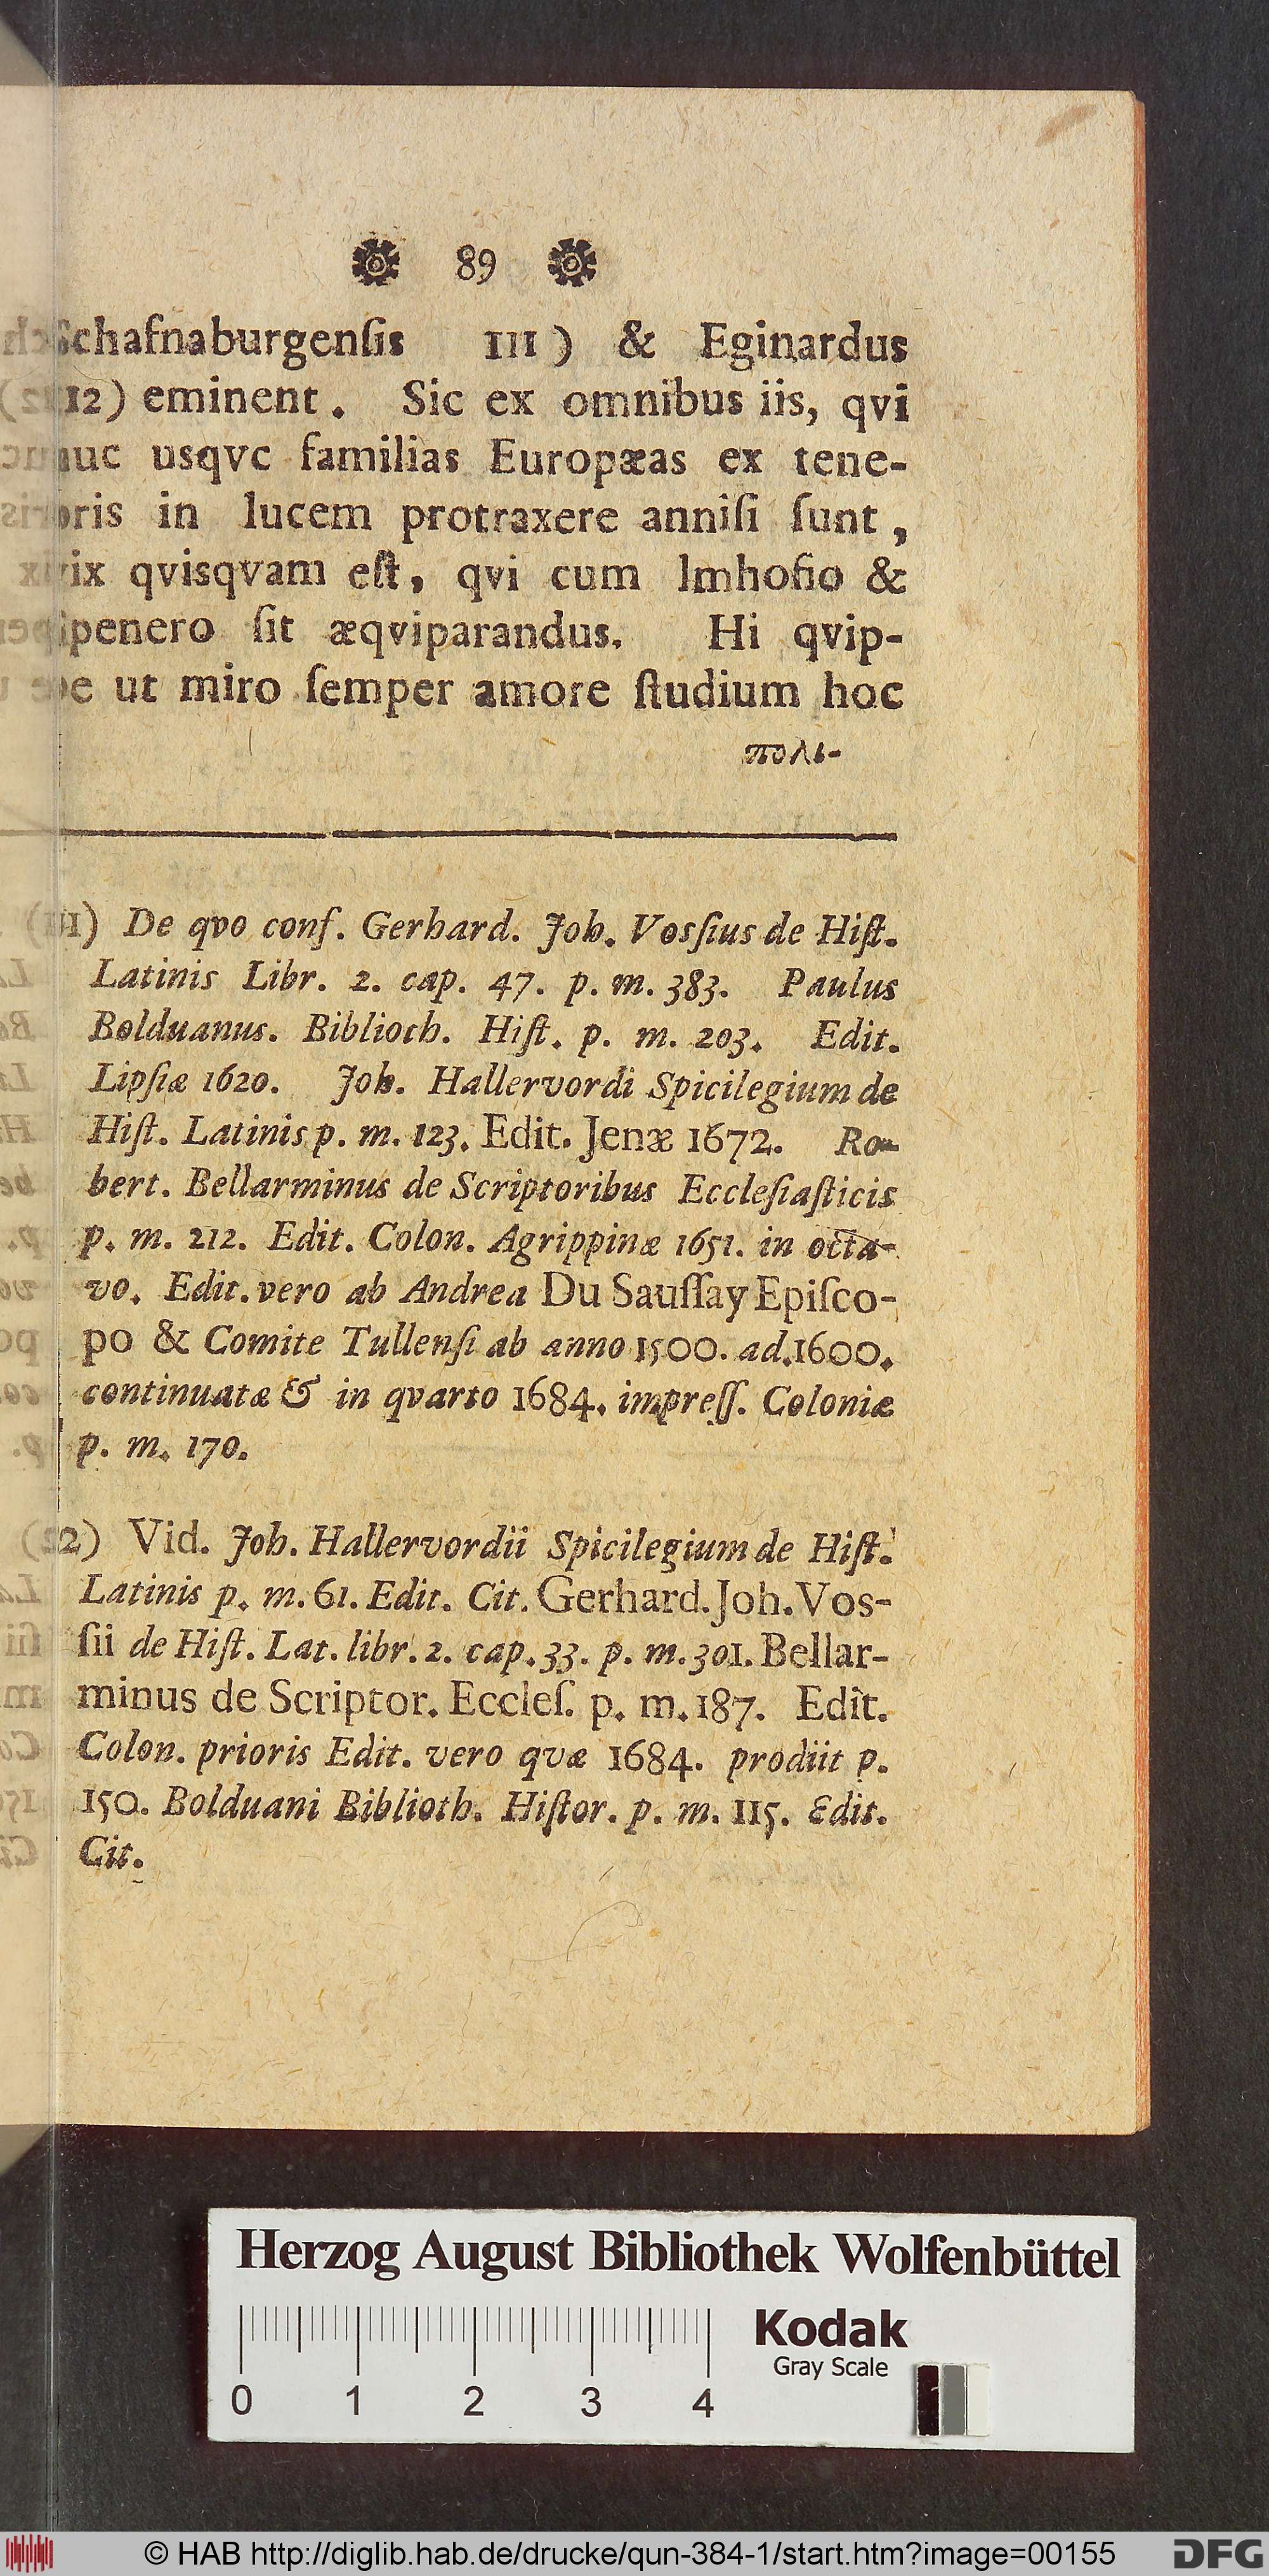 89
Schafnaburgenſis 111) & Eginardus
12) eminent. Sic ex omnibus iis, qvi
nuc usqve familias Europæas ex tene-
bris in lucem protraxere anniſi ſunt,
vix qvisqvam eſt, qvi cum Imhofio &
Spenero ſit æqviparandus. Hi qvip-
pe ut miro ſemper amore ſtudium hoc
πολι-
11) De qvo conf. Gerhard. Joh. Vosſius de Hiſt.
Latinis Libr. 2. cap. 47. p. m. 383. Paulus
Bolduanus. Biblioth. Hiſt. p. m. 203. Edit.
Lipſiæ 1620. Joh. Hallervordi Spicilegium de
Hiſt. Latinis p. m. 123. Edit. Jenæ 1672. Ro-
bert. Bellarminus de Scriptoribus Eccleſiaſticis
p. m. 212. Edit. Colon. Agrippinæ 1651. in octa-
vo. Edit. vero ab Andrea Du Sauſſay Epiſco-
po & Comite Tullenſi ab anno 1500. ad. 1600.
continuatæ & in qvarto 1684. impreſſ. Coloniæ
p. m. 170.
12) Vid. Joh. Hallervordii Spicilegium de Hiſt.
Latinis p. m. 61. Edit. Cit. Gerhard. Joh. Vos-
ſii de Hiſt. Lat. libr. 2. cap. 33. p. m. 301. Bellar-
minus de Scriptor. Eccleſ. p. m. 187. Edit.
Colon. prioris Edit. vero qvæ 1684. prodiit p.
150. Bolduani Biblioth. Hiſtor. p. m. 115. Edit.
Cit.
Herzog August Bibliothek Wolfenbüttel
Kodak
Gray Scale
0 1 2 3 4
© HAB http://diglib.hab.de/drucke/qun-384-1/start.htm?image=00155
DFG